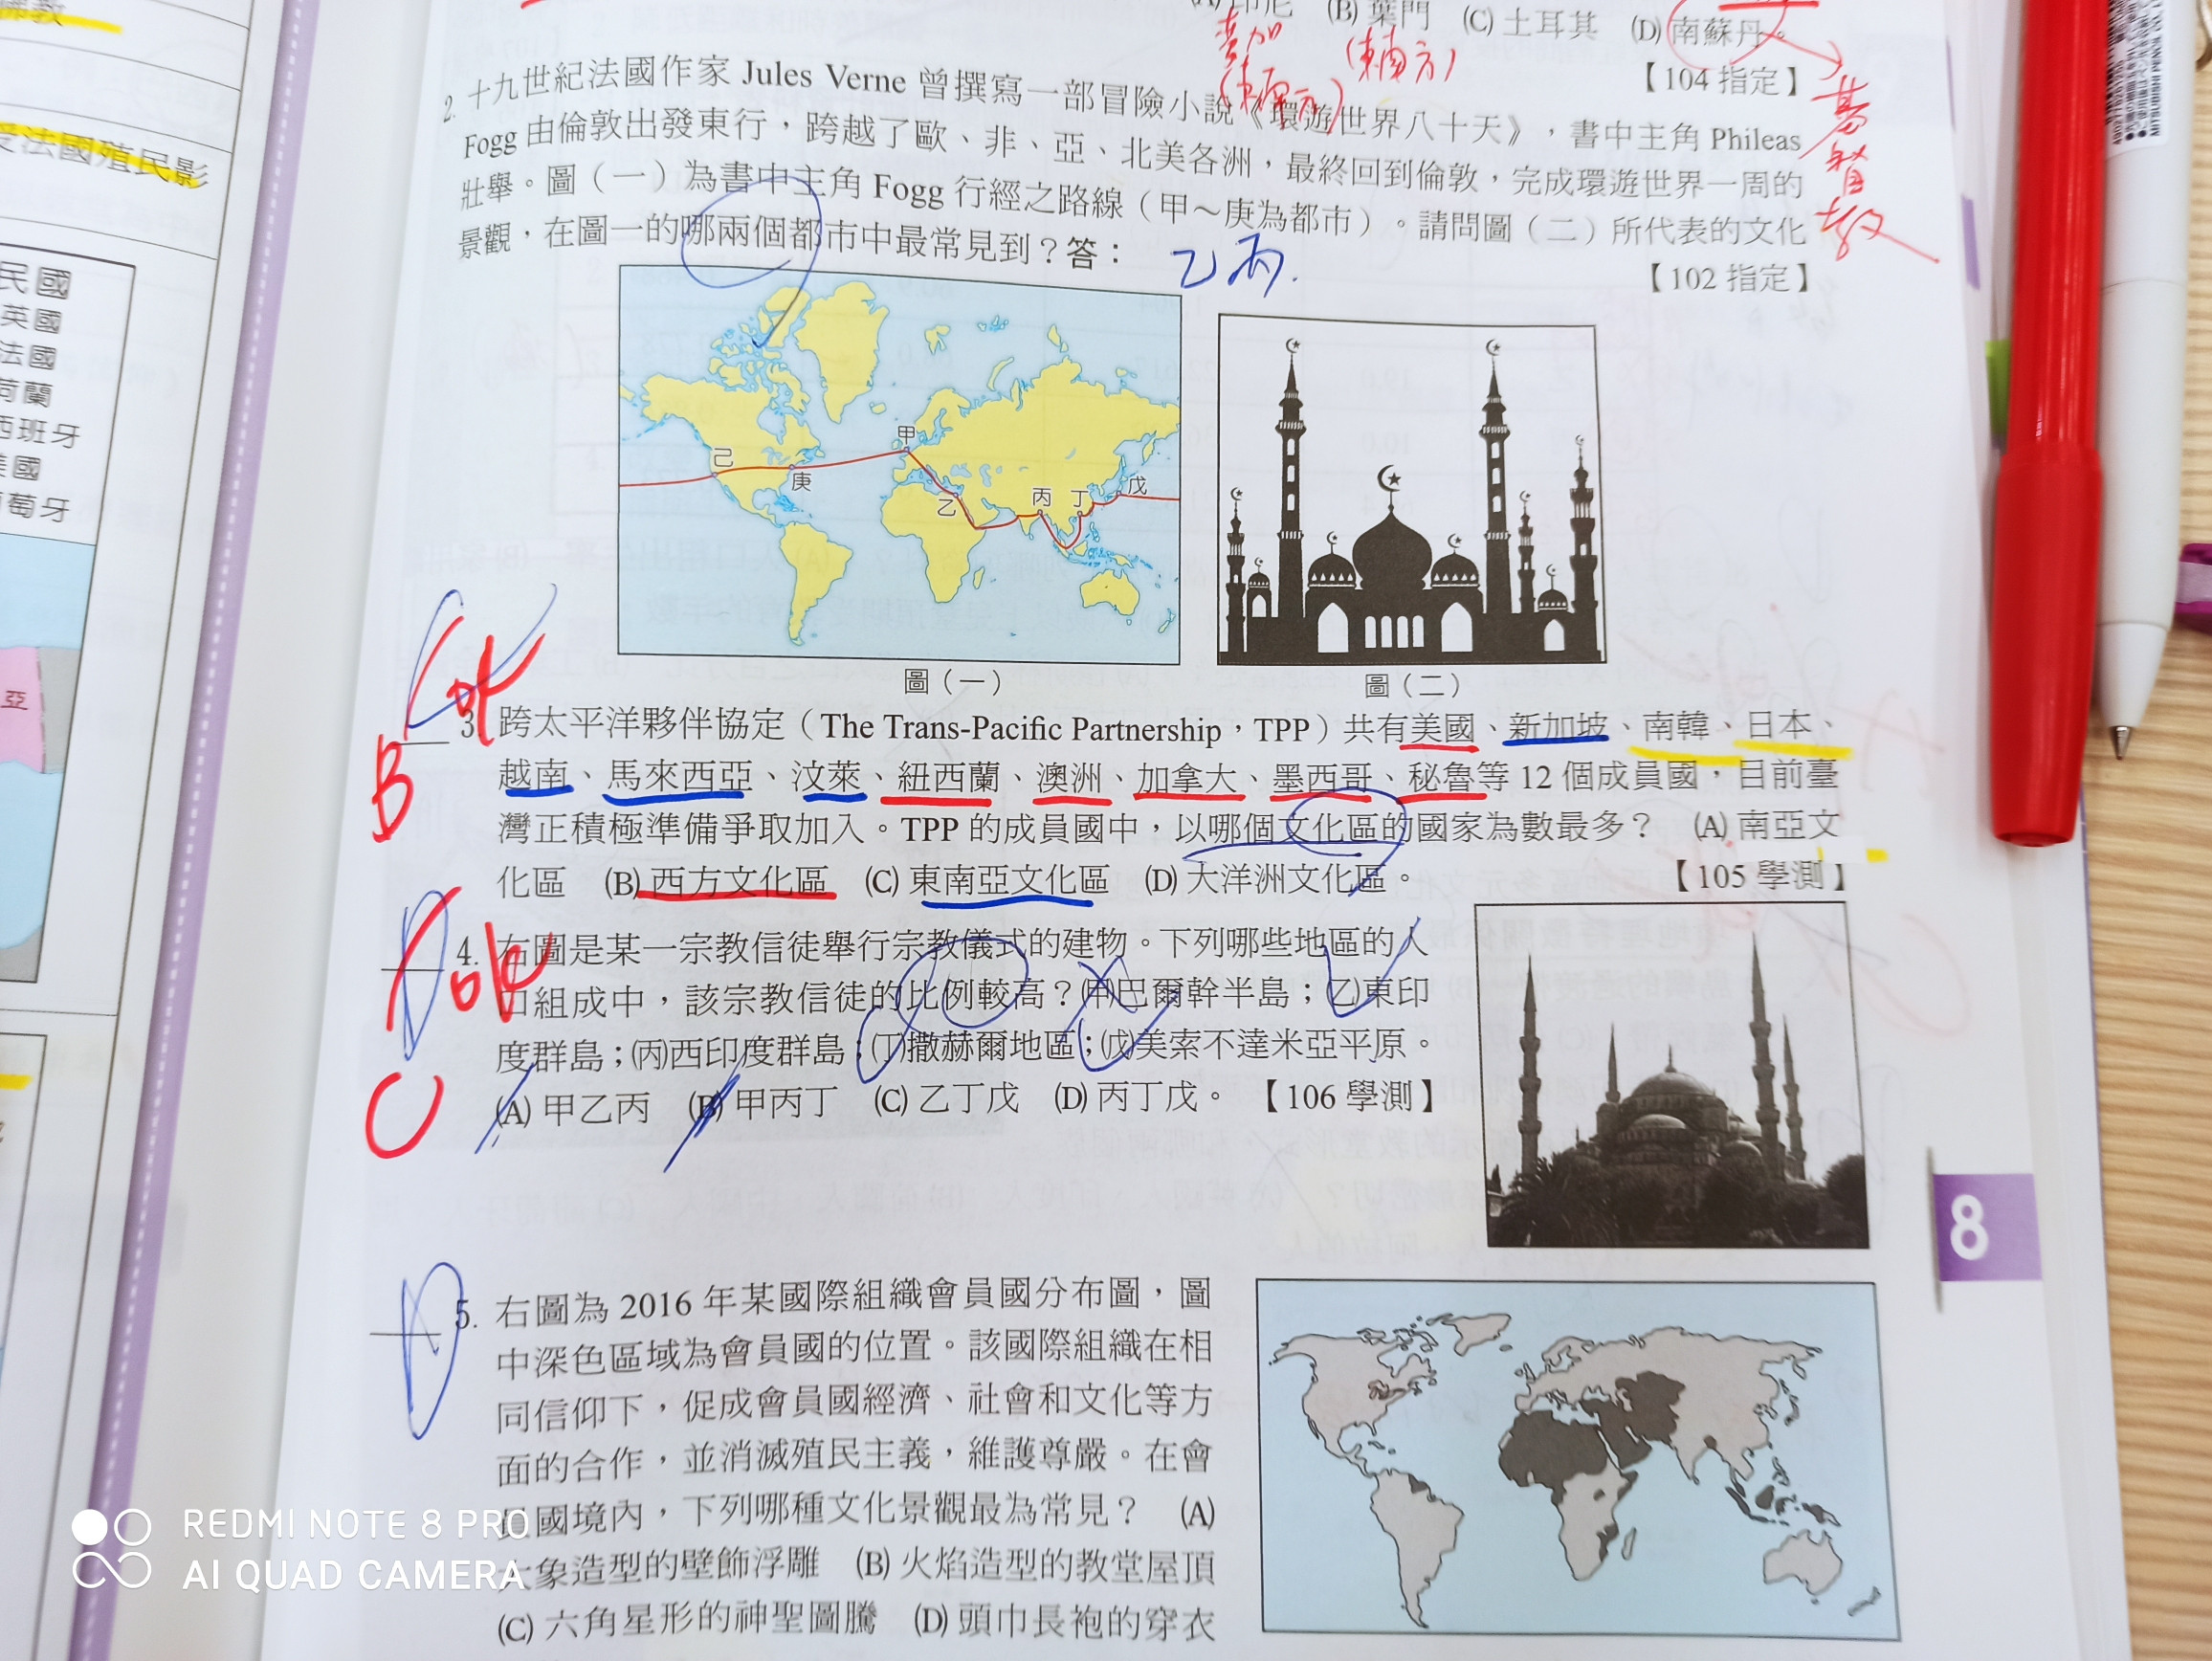 佛教
受法國殖民影
民國
英國
法國
荷蘭
西班牙
美國
葡萄牙
亞
(A)印尼 (B)葉門 (C)土耳其 (D)南蘇丹。
【104 指定】
基督教
2. 十九世紀法國作家 Jules Verne 曾撰寫一部冒險小說《環遊世界八十天》，書中主角 Phileas
Fogg 由倫敦出發東行，跨越了歐、非、亞、北美各洲，最終回到倫敦，完成環遊世界一周的
壯舉。圖（一）為書中主角 Fogg 行經之路線（甲～庚為都市）。請問圖（二）所代表的文化
景觀，在圖一的哪兩個都市中最常見到？答： 乙丙.
【102 指定】
甲
己
庚
乙
丙
丁
戊
圖（一）
圖（二）
ok
B
3. 跨太平洋夥伴協定（The Trans-Pacific Partnership，TPP）共有美國、新加坡、南韓、日本、
越南、馬來西亞、汶萊、紐西蘭、澳洲、加拿大、墨西哥、秘魯等 12 個成員國，目前臺
灣正積極準備爭取加入。TPP 的成員國中，以哪個文化區的國家為數最多？ (A) 南亞文
化區 (B) 西方文化區 (C) 東南亞文化區 (D) 大洋洲文化區。
【105 學測】
D
ok
C
4. 右圖是某一宗教信徒舉行宗教儀式的建物。下列哪些地區的人
口組成中，該宗教信徒的比例較高？(甲)巴爾幹半島；(乙)東印
度群島；(丙)西印度群島；(丁)撒赫爾地區；(戊)美索不達米亞平原。
(A) 甲乙丙 (B) 甲丙丁 (C) 乙丁戊 (D) 丙丁戊。 【106 學測】
8
D
5. 右圖為 2016 年某國際組織會員國分布圖，圖
中深色區域為會員國的位置。該國際組織在相
同信仰下，促成會員國經濟、社會和文化等方
面的合作，並消滅殖民主義，維護尊嚴。在會
員國境內，下列哪種文化景觀最為常見？ (A)
大象造型的壁飾浮雕 (B) 火焰造型的教堂屋頂
(C) 六角星形的神聖圖騰 (D) 頭巾長袍的穿衣
REDMI NOTE 8 PRO
AI QUAD CAMERA